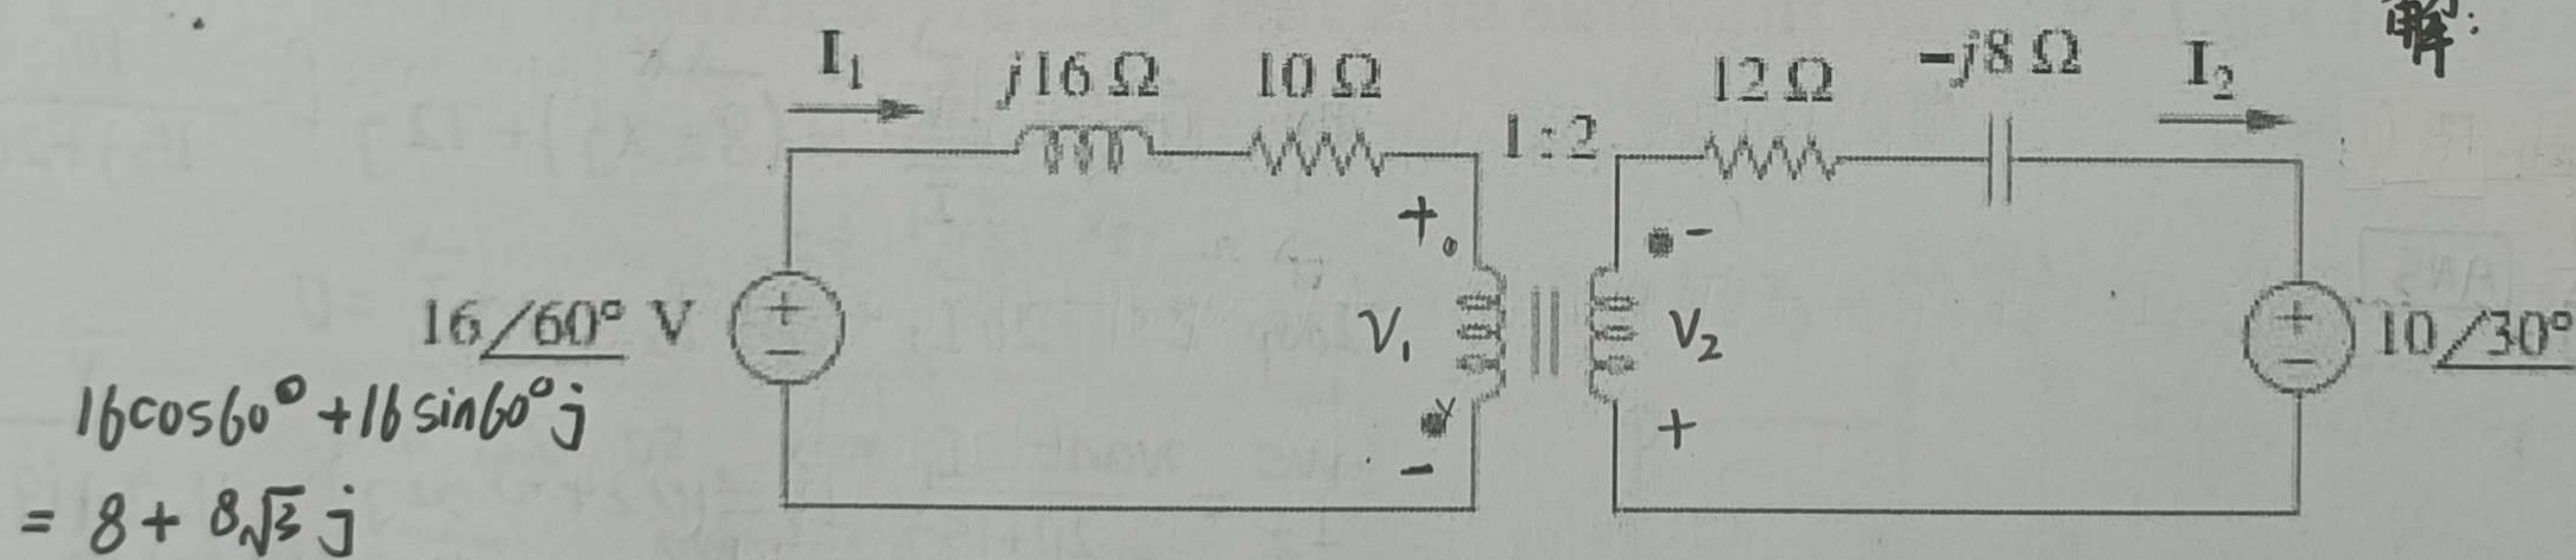 解:
I₁
j16 Ω
10 Ω
1 : 2
12 Ω
−j8 Ω
I₂
+
−
16/60° V
+
−
V₁
V₂
+
−
10/30°
−
+
16cos60° + 16sin60°j
= 8 + 8√3 j